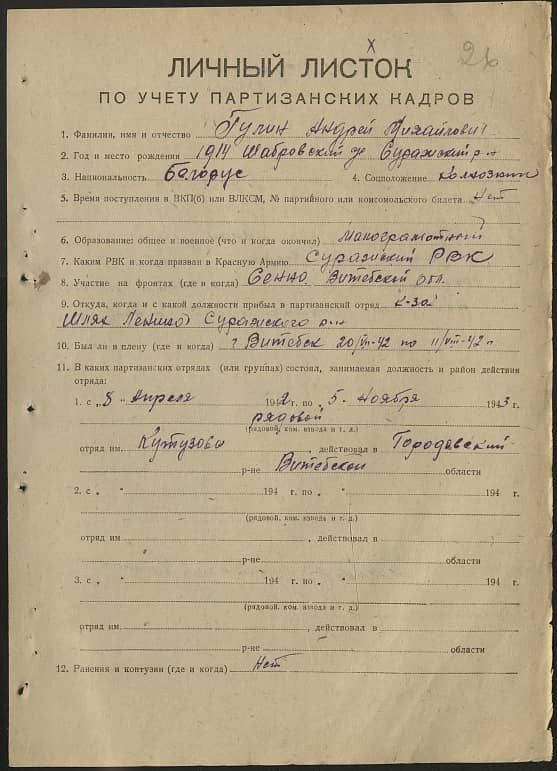 26
ЛИЧНЫЙ ЛИСТОК
ПО УЧЕТУ ПАРТИЗАНСКИХ КАДРОВ
1. Фамилия, имя и отчество Гулин Андрей Михайлович
2. Год и место рождения 1914 Суражский р-н
3. Национальность белорус 4. Соцположение колхозник
5. Время поступления в ВКП(б) или ВЛКСМ, № партийного или комсомольского билета Нет
6. Образование: общее и военное (что и когда окончил) малограмотный
7. Каким РВК и когда призван в Красную Армию Суражский РВК
8. Участие на фронтах (где и когда) Сенно Витебской обл.
9. Откуда, когда и с какой должности прибыл в партизанский отряд к-за
Шлях Ленина Суражского р-н
10. Был ли в плену (где и когда) г Витебск 20/VII-42 по 11/VIII-42 г
11. В каких партизанских отрядах (или группах) состоял, занимаемая должность и район действия
отряда:
1. с „8 " Апреля 1942 г. по „5. " Ноября 1943 г
рядовой
(рядовой, ком. взвода и т. д.)
отряд им. Кутузова, действовал в Городокский
р-не Витебской области
2. с „ " 194 г. по „ " 194 г.
(рядовой, ком. взвода и т. д.)
отряд им, действовал в
р-не области
3. с „ " 194 г. по „ " 194 г.
(рядовой, ком. взвода и т. д.)
отряд им., действовал в
р-не области
12. Ранения и контузии (где и когда) Нет